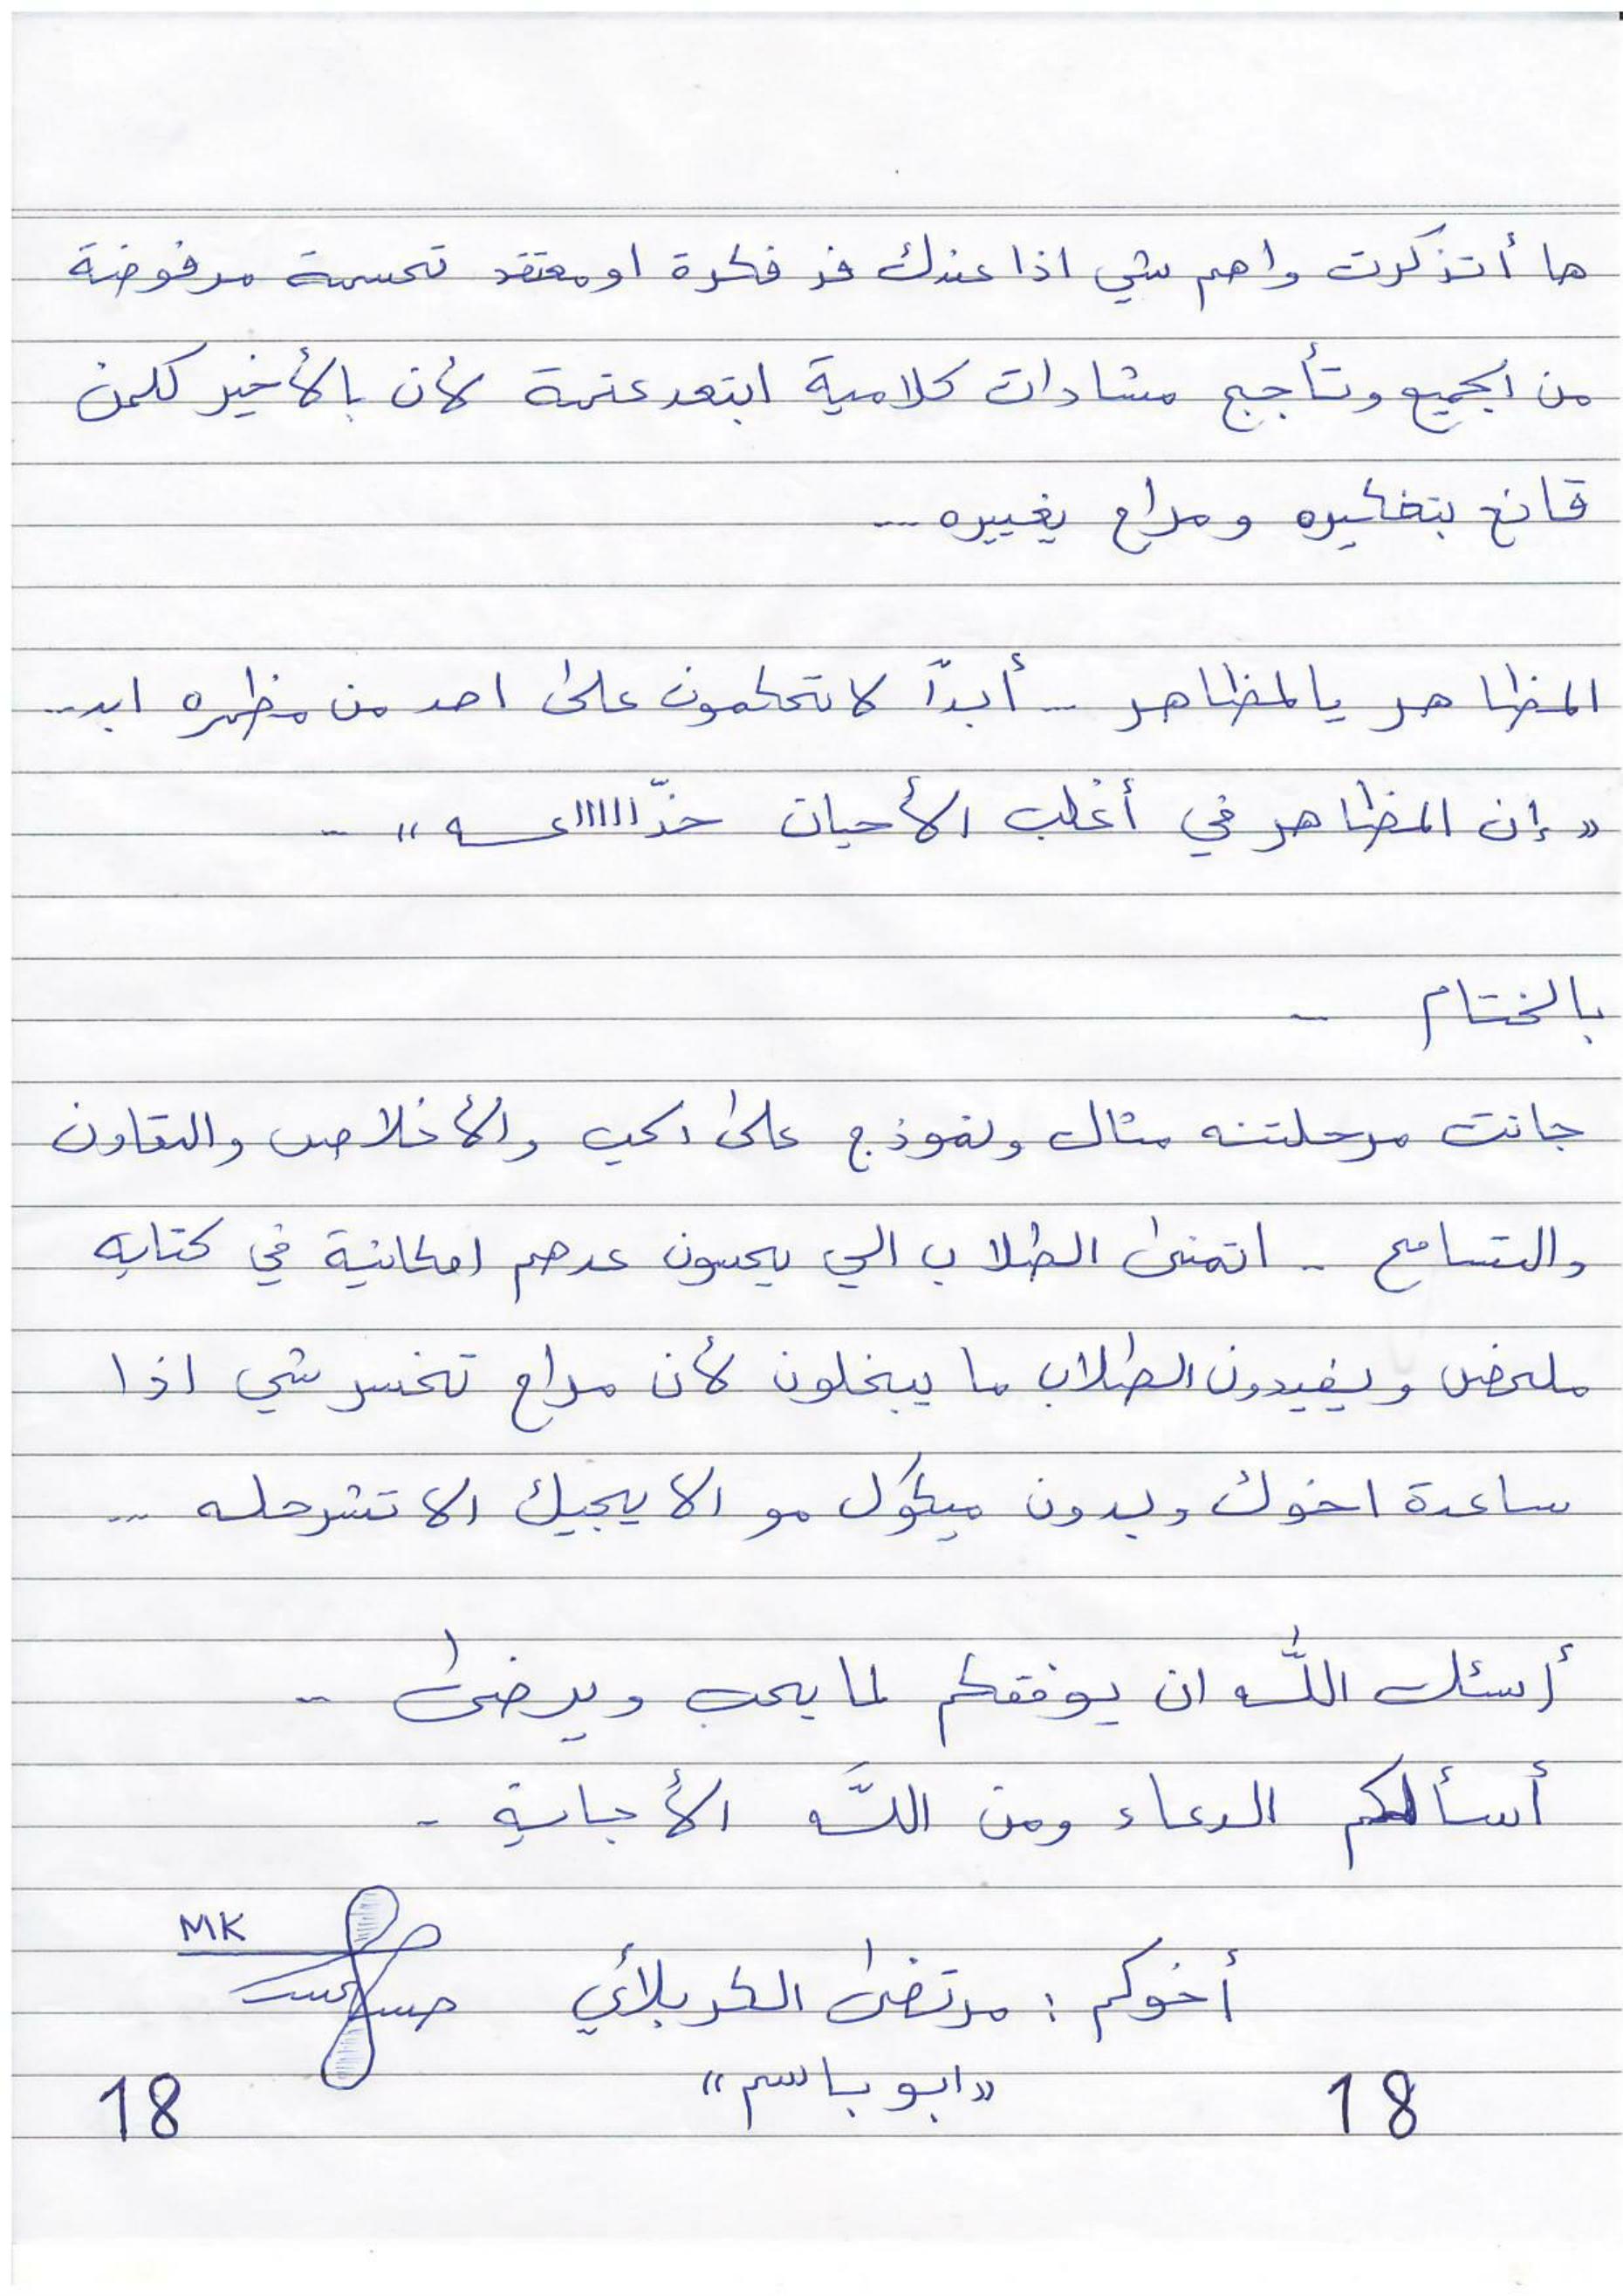 ها أتذكرت واهم شي اذا عندك فد فكرة او معتقد تحسة مرفوضة
من الجميع وتأجج مشادات كلامية ابتعد عنة لأن بالأخير كلمن
قانع بتفكيره ومراح يغييره ...
المظاهر يالمظاهر .. أبداً لا تحكمون على احد من مظهره ابد..
« إن المظاهر في أغلب الأحيان خدّاااااعه » ..
بالختام ..
جانت مرحلتنه مثال ونموذج على الحب والأخلاص والتعاون
والتسامح .. اتمنى الطلاب الي يحسون عدهم امكانية في كتابه
ملخص ويفيدون الطلاب ما يبخلون لأن مراح تخسر شي اذا
ساعدة اخوك وبدون ميكول مو الا يجيك الا تشرحله ...
أسئل اللّه ان يوفقكم لما يحب ويرضى ..
أسألكم الدعاء ومن اللّه الأجابة .
MK
أخوكم : مرتضى الكربلائي
« ابو باسم »
18 18